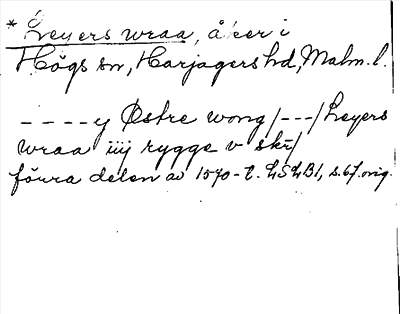 * Leyers wraa, åker i
Högs sn, Harjagers hd, Malm. l.
- - - - y Østre wong /---/ Leyers
wraa iiij rygge v skr/
förra delen av 1570-t. LSLB1, s. 67. orig.